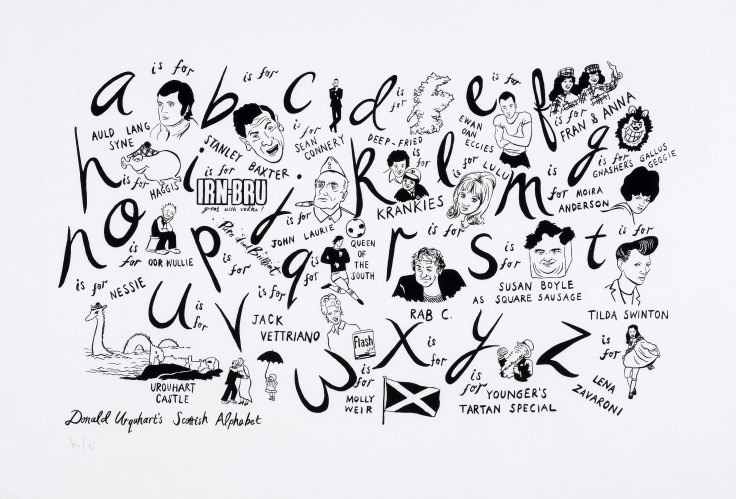 a is for
AULD LANG
SYNE
b is for
STANLEY BAXTER
c is for
SEAN
CONNERY
d is for
DEEP-FRIED
e is for
EWAN
OAN
ECCIES
f is for
FRAN & ANNA
g is for
GNASHER'S GALLUS
GEGGIE
h is for
HAGGIS
i is for
IRN-BRU
great with vodka!
j is for
JOHN LAURIE
k is for
KRANKIES
l is for LULU
m is for
MOIRA
ANDERSON
n is for NESSIE
o is for OOR WULLIE
p is for
Pure Deid Brilliant
q is for
QUEEN
OF
THE
SOUTH
r is for
RAB C.
s is for
SUSAN BOYLE
AS SQUARE SAUSAGE
t is for
TILDA SWINTON
u is for
URQUHART
CASTLE
v is for
JACK
VETTRIANO
w is for
MOLLY
WEIR
Flash
x is for
y is for
YOUNGER'S
TARTAN SPECIAL
z is for
LENA
ZAVARONI
Donald Urquhart's Scottish Alphabet